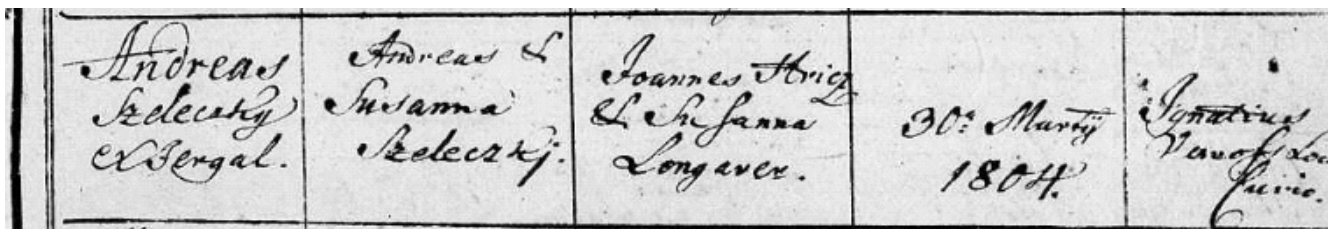 Andreas
Szeleczky
ex Bergal.
Andreas &
Susanna
Szeleczkj.
Joannes Hricz
& Susanna
Longaver.
30ª Martÿ
1804.
Ignatius
Loc
Curio.